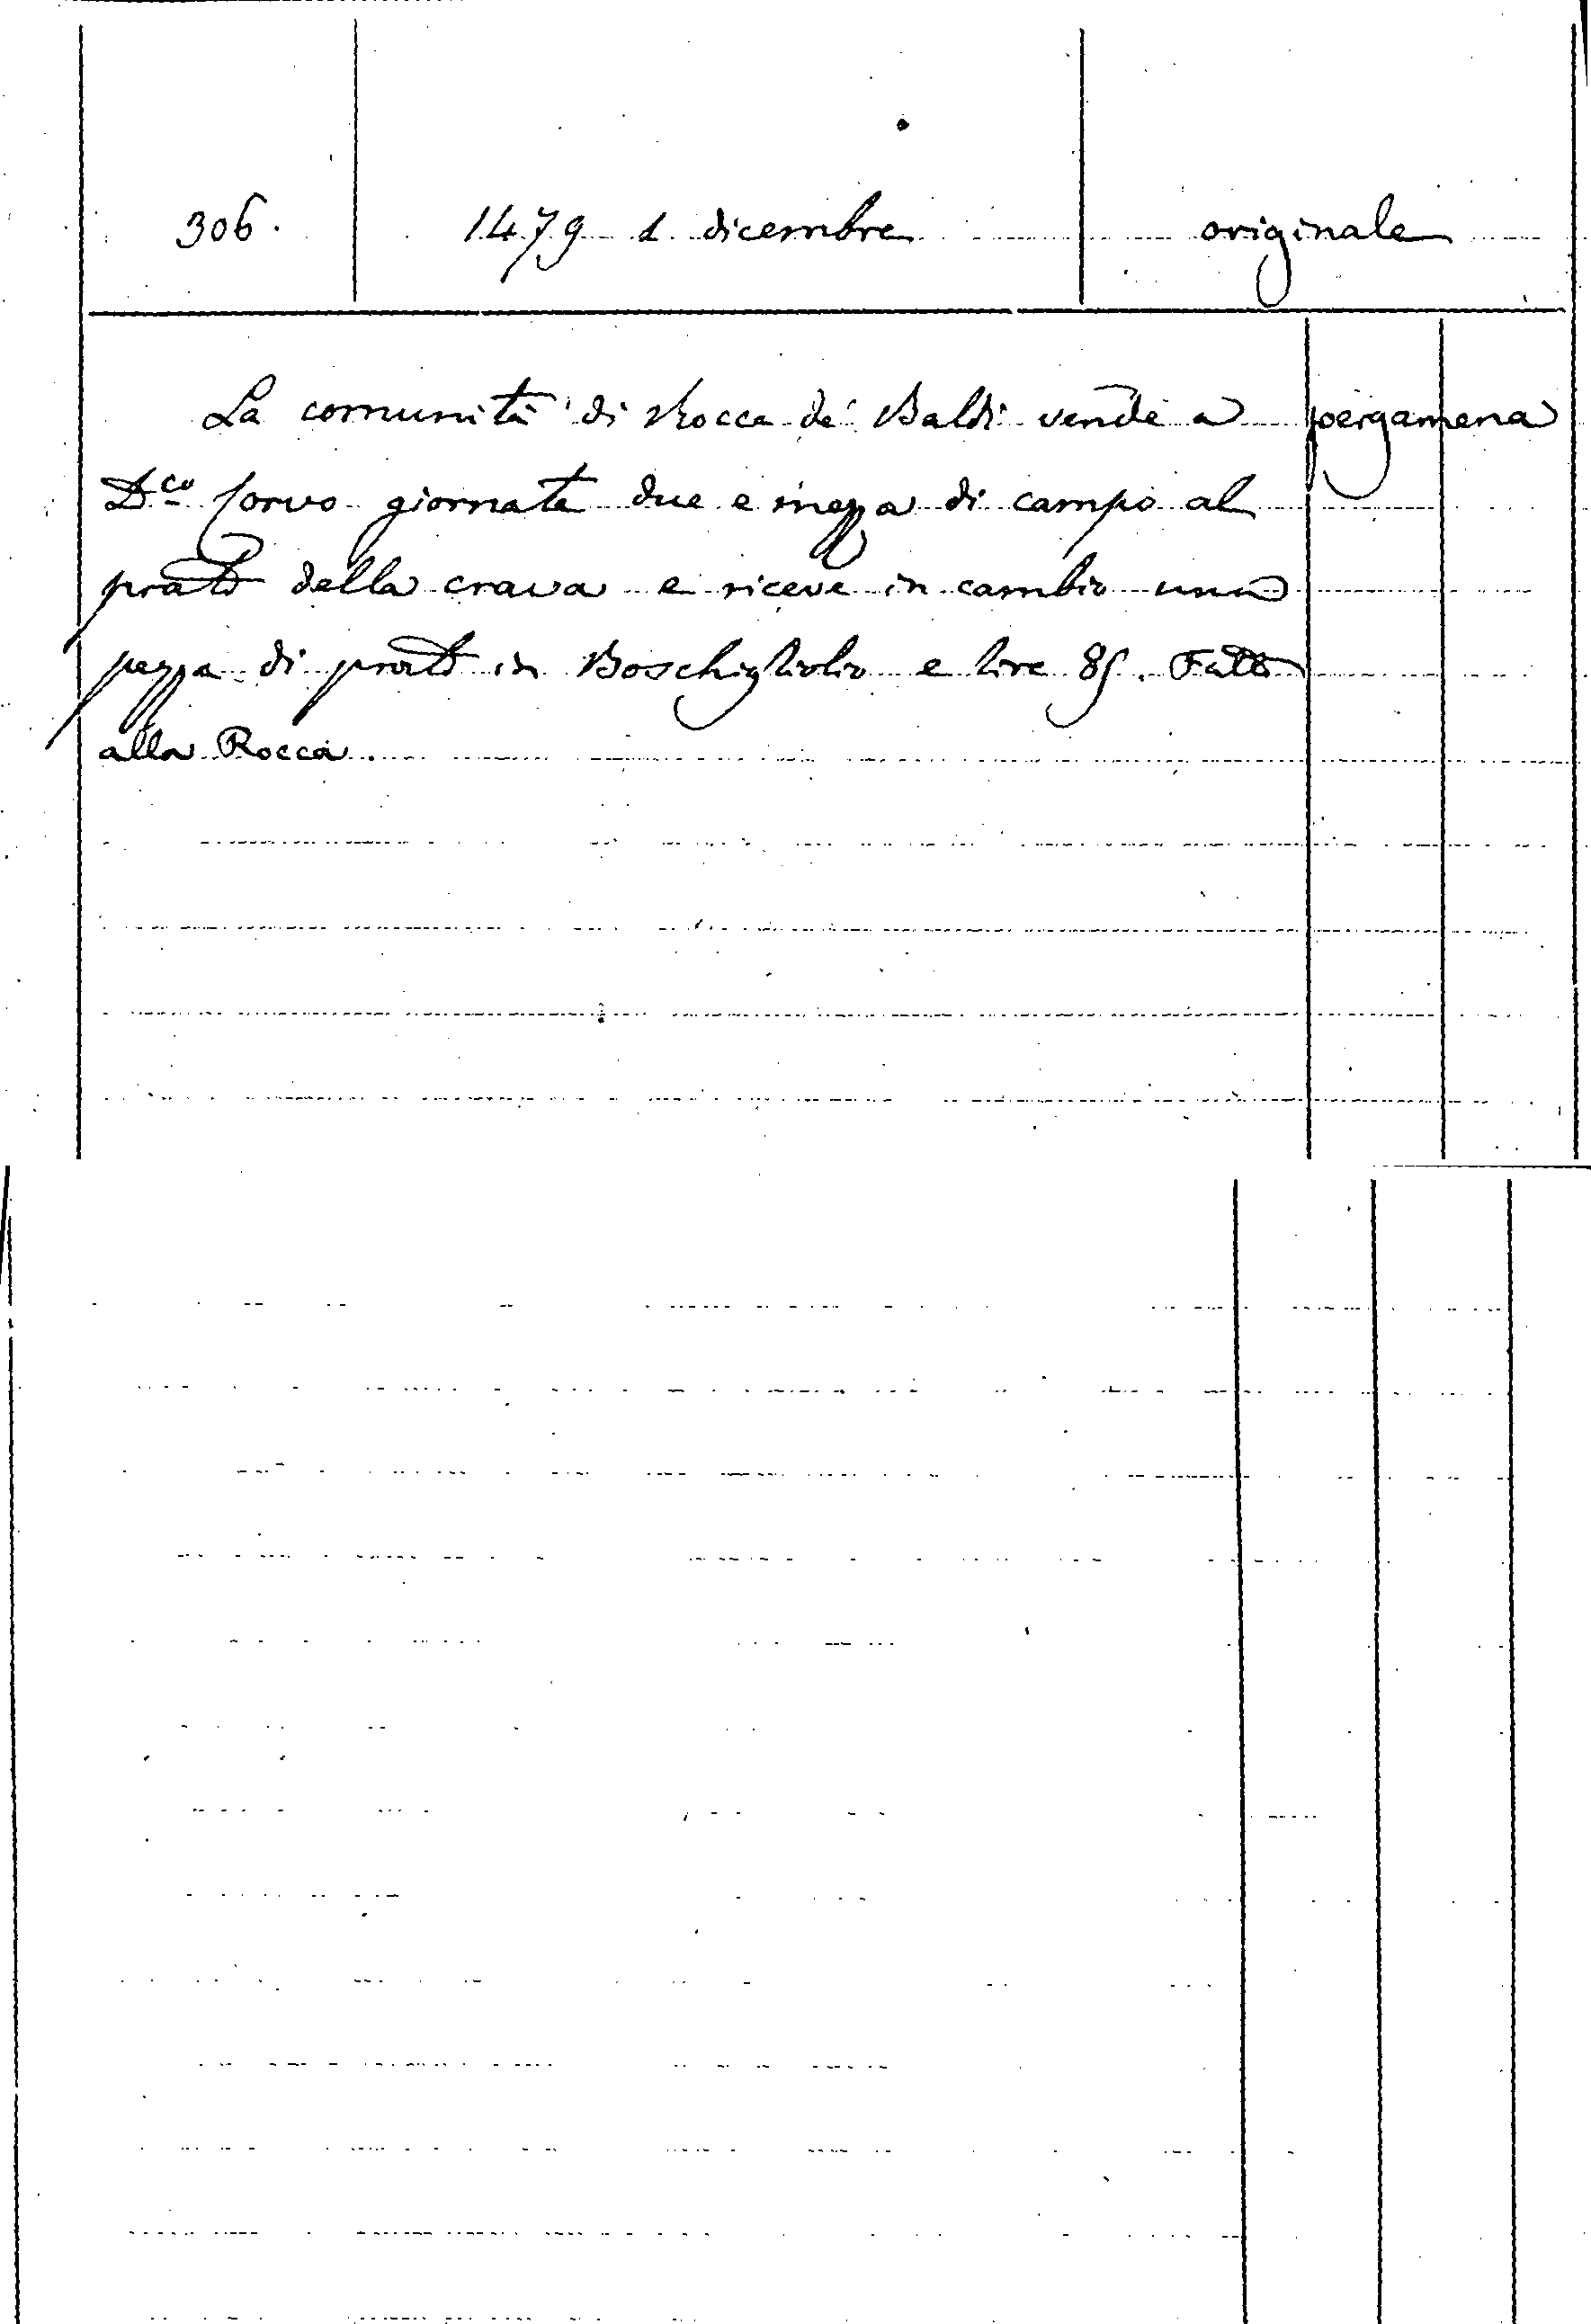 306. 1479 1 dicembre originale
La comunità di Rocca de' Baldi vende a pergamena
D.co Corvo giornate due e mezza di campo al
prato della crava e riceve in cambio una
pezza di prato in Boschigliolio e lire 85. Fatto
alla Rocca.